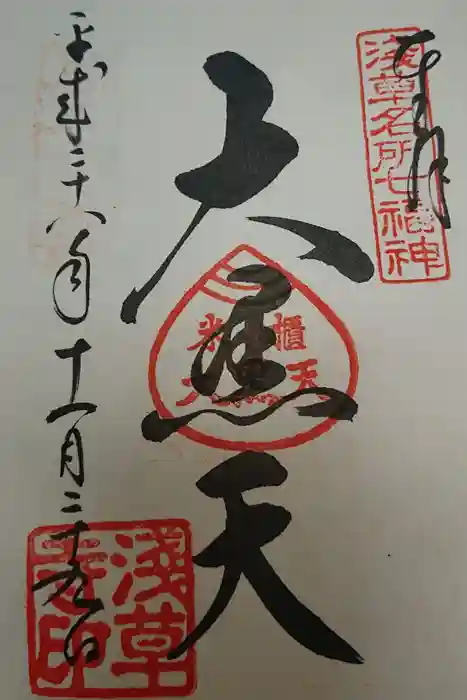 奉拝
浅草名所七福神
大黒天
米櫃
大黒天
平成二十八年十一月二十九日
浅草寺印